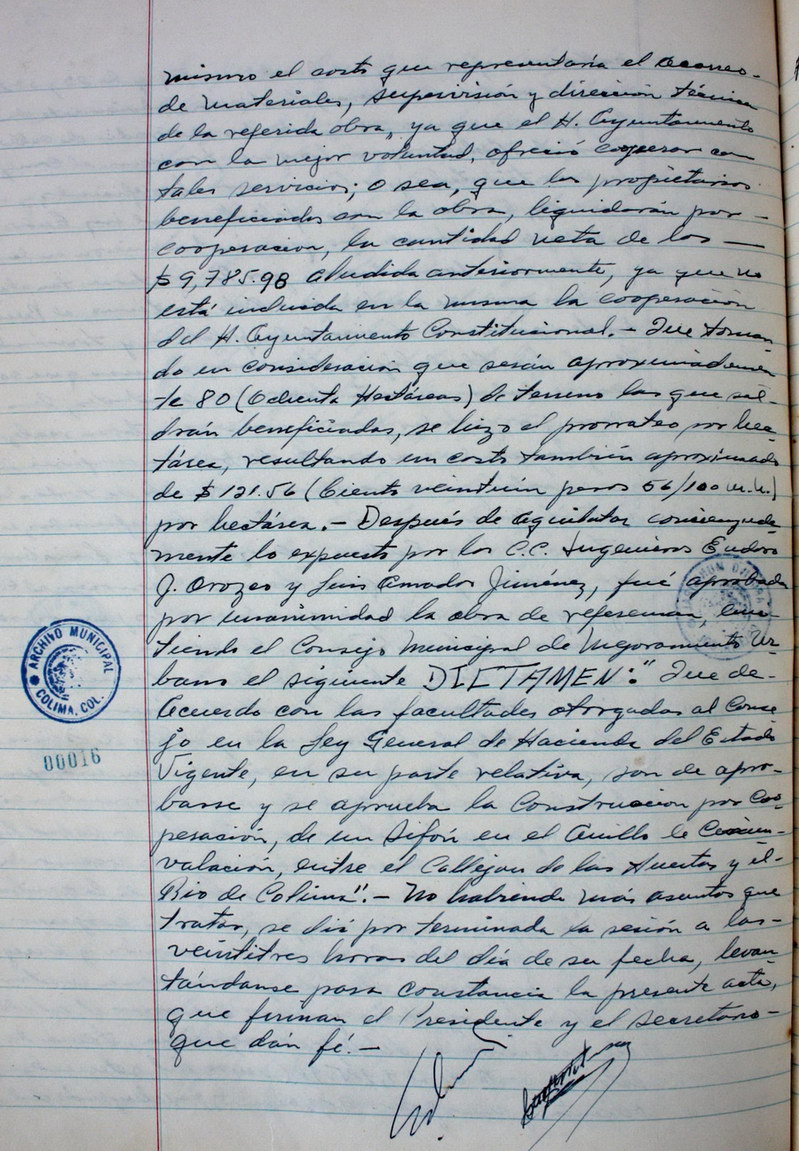 mismo el costo que representaría el acarreo-
de materiales, supervisión y dirección técnica
de la referida obra, ya que el H. Ayuntamiento
con la mejor voluntad, ofreció cooperar con
tales servicios; o sea, que los propietarios
beneficiados con la obra, liquidarán por-
cooperacion, la cantidad neta de los —
$9,785.98 aludida anteriormente, ya que no
está incluida en la misma la cooperación
del H. Ayuntamiento Constitucional.- Que toman-
do en consideración que serán aproximadamen-
te 80 (Ochenta Hectáreas) de terreno las que sal-
drán beneficiadas, se hizo el prorrateo por hec-
tárea, resultando un costo también aproximado
de $121.56 (Ciento veintiún pesos 56/100 m.n.)
por hectárea.- Después de aquilatar concienzuda
mente lo expuesto por los C.C. Ingenieros Eudoro
J. Orozco y Luis Amador Jiménez, fué aprobada
por unanimidad la obra de referencia, emi-
tiendo el Consejo Municipal de Mejoramiento Ur-
bano el siguiente DICTAMEN:" Que de-
Acuerdo con las facultades otorgadas al Conse
jo en la Ley General de Hacienda del Estado
Vigente, en su parte relativa, son de apro-
barse y se aprueba la Construccion por Coo-
peración, de un Sifón en el Anillo de Circun-
valación, entre el Callejon de las Huertas y el-
Rio de Colima".- No habiendo más asuntos que
tratar, se dió por terminada la sesión a las-
veintitres horas del día de su fecha, levan-
tándanse para constancia la presente acta,
que firman el Presidente y el secretario-
que dán fé.-
ARCHIVO MUNICIPAL
COLIMA, COL.
00016